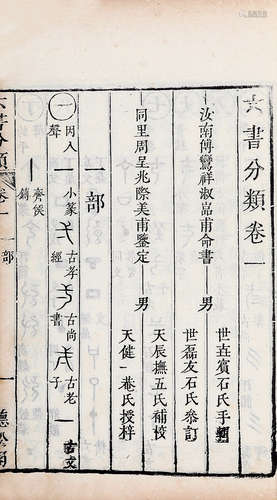 六書分類卷一
汝南傅鸞祥淑嘉甫命書
男
世垚賓石氏手輯
世磊友石氏參訂
同里周呈兆際美甫鑒定
男
天辰撫五氏補校
天健一菴氏授梓
部
一 因入聲 小篆 古孝經 古尚書 古老子 古文
齊侯鎛
六書分類 卷一 一部 一